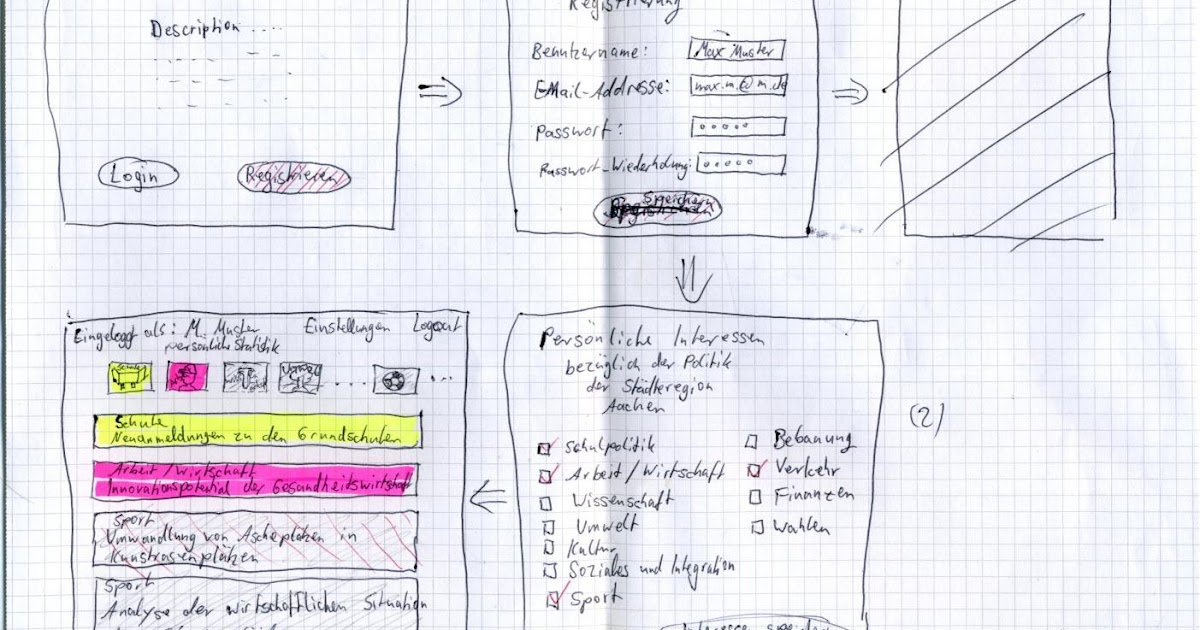 Description ....
Login
Registrieren
Registrierung
Benutzername:
Max Muster
EMail-Addresse:
max.m.@m.de
Passwort:
Passwort-Wiederholung:
Speichern
Eingeloggt als: M. Muster
Einstellungen
Logout
persönliche Statistik
Schule
Umwelt
Schule
Neuanmeldungen zu den Grundschulen
Arbeit/Wirtschaft
Innovationspotential der Gesundheitswirtschaft
Sport
Umwandlung von Ascheplätzen in
Kunstrasenplätzen
Sport
Analyse der wirtschaftlichen Situation
Persönliche Interessen
bezüglich der Politik
der Städteregion
Aachen
Schulpolitik
Arbeit/Wirtschaft
Wissenschaft
Umwelt
Kultur
Soziales und Integration
Sport
Bebauung
Verkehr
Finanzen
Wahlen
(2)